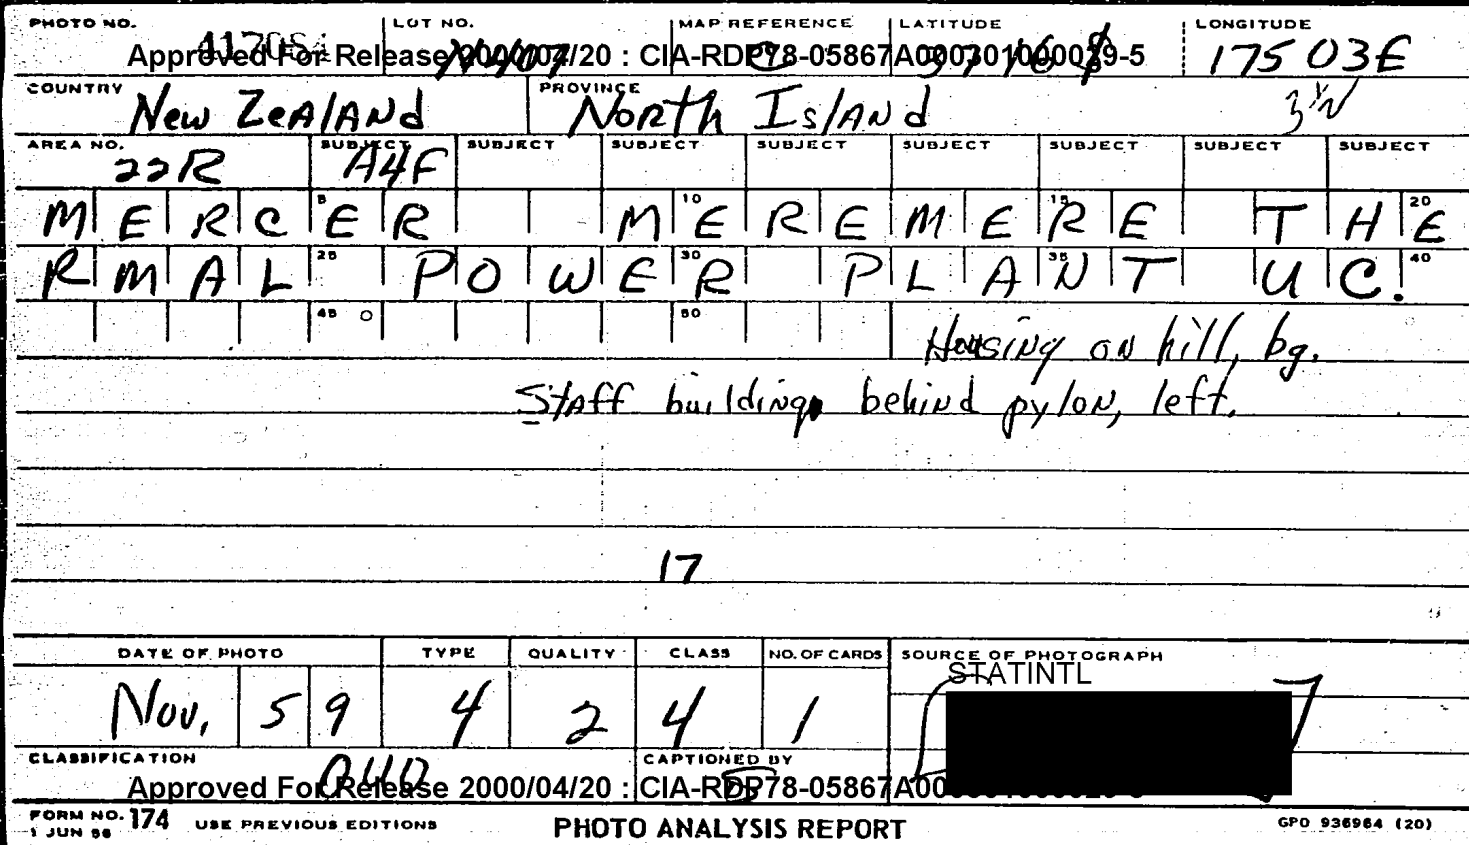 PHOTO NO. LOT NO. MAP REFERENCE LATITUDE LONGITUDE
Approved For Release 2000/04/20 : CIA-RDP78-05867A000301000029-5
175 03E
COUNTRY New ZeAlANd PROVINCE NoRth IslANd 3 1/2
AREA NO. 22R SUBJECT A4F SUBJECT SUBJECT SUBJECT SUBJECT SUBJECT SUBJECT SUBJECT
5 10 15 20
MERCER MEREMERE THE
25 30 35 40
RMAL POWER PLANT UC.
45 50
Housing on hill, bg.
Staff building behind pylon, left.
17
DATE OF PHOTO TYPE QUALITY CLASS NO. OF CARDS SOURCE OF PHOTOGRAPH
STATINTL
Nov. 59 4 2 4 1
CLASSIFICATION OUO CAPTIONED BY
Approved For Release 2000/04/20 : CIA-RDP78-05867A00
FORM NO. 174 USE PREVIOUS EDITIONS PHOTO ANALYSIS REPORT GPO 936964 (20)
1 JUN 56